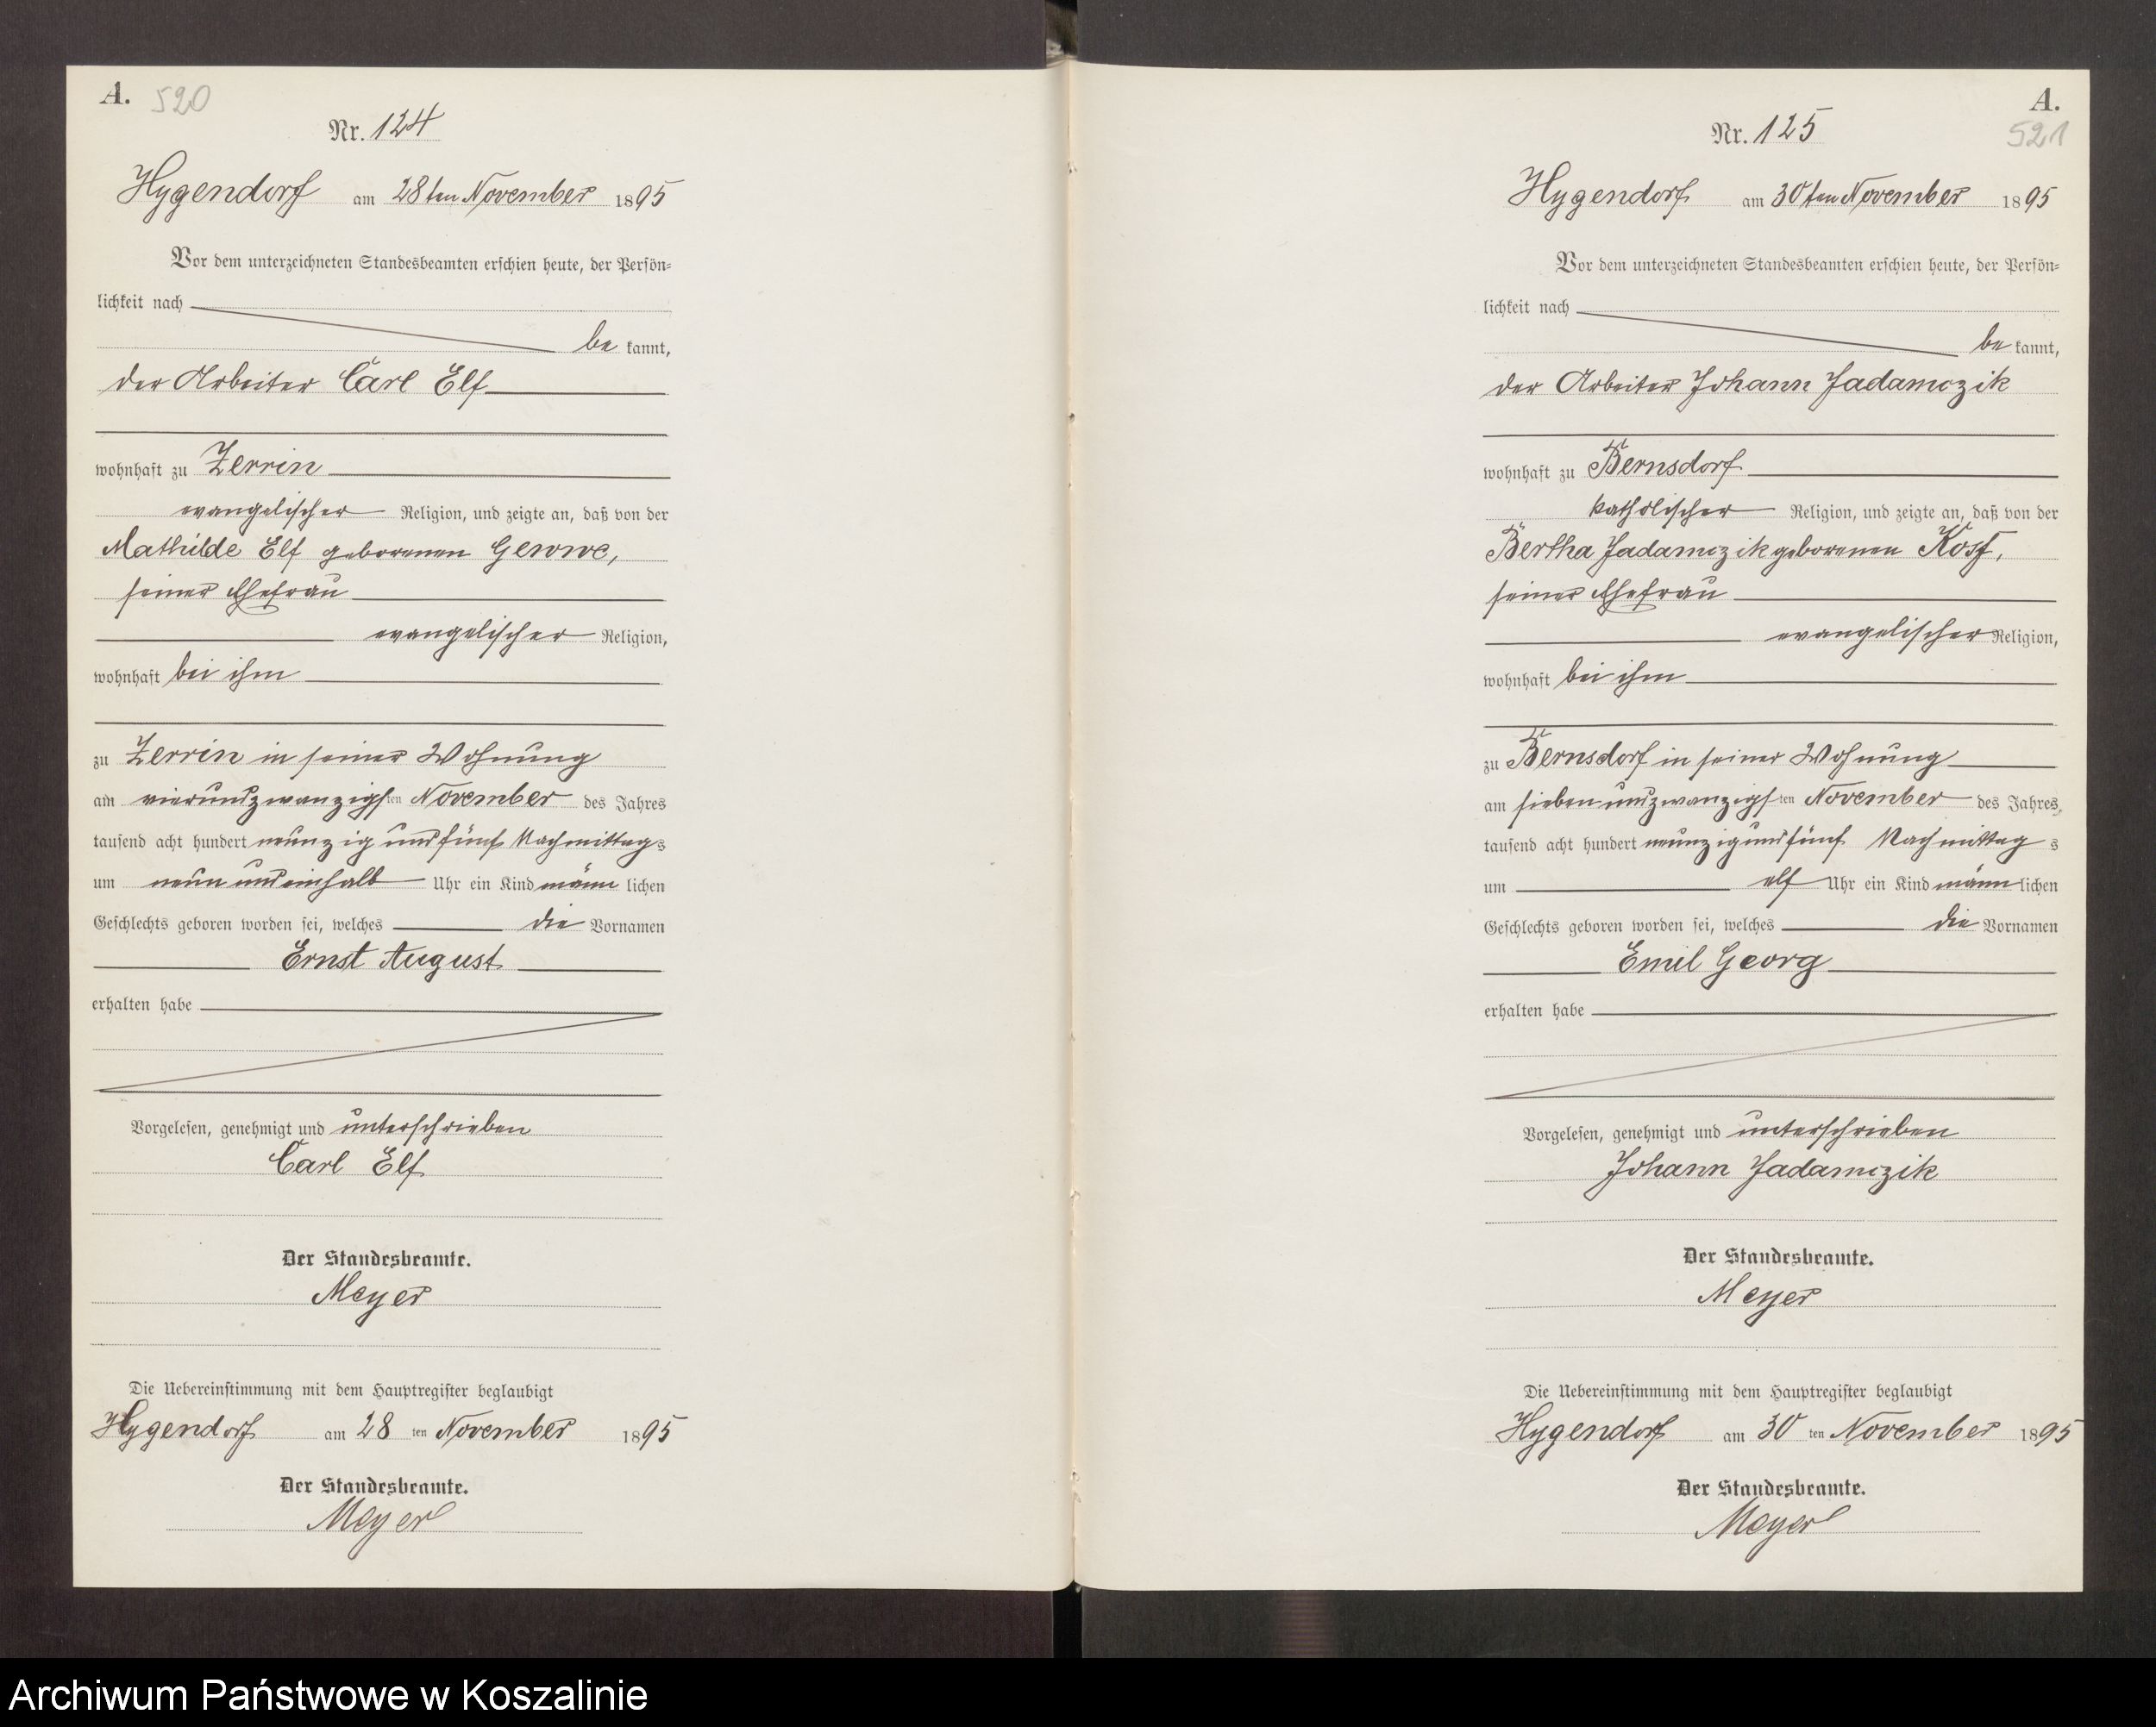 A. 520
Nr. 124
Hygendorf am 28ten November 1895
Vor dem unterzeichneten Standesbeamten erschien heute, der Persön=
lichkeit nach
be kannt,
der Arbeiter Carl Elf
wohnhaft zu Zerrin
evangelischer Religion, und zeigte an, daß von der
Mathilde Elf geborenen
seiner Ehefrau
evangelischer Religion,
wohnhaft bei ihm
zu Zerrin in seiner Wohnung
am vierundzwanzigsten November des Jahres
tausend acht hundert neunzig und fünf Nachmittags
um neun und einhalb Uhr ein Kind männlichen
Geschlechts geboren worden sei, welches die Vornamen
Ernst August
erhalten habe
Vorgelesen, genehmigt und unterschrieben
Carl Elf
Der Standesbeamte.
Meyer
Die Uebereinstimmung mit dem Hauptregister beglaubigt
Hygendorf am 28 ten November 1895
Der Standesbeamte.
Meyer
A.
521
Nr. 125
Hygendorf am 30ten November 1895
Vor dem unterzeichneten Standesbeamten erschien heute, der Persön=
lichkeit nach
be kannt,
der Arbeiter Johann Jadamczik
wohnhaft zu Bernsdorf
katholischer Religion, und zeigte an, daß von der
Bertha Jadamczik geborenen
seiner Ehefrau
evangelischer Religion,
wohnhaft bei ihm
zu Bernsdorf in seiner Wohnung
am siebenundzwanzigsten November des Jahres
tausend acht hundert neunzig und fünf Nachmittags
um elf Uhr ein Kind männlichen
Geschlechts geboren worden sei, welches die Vornamen
Emil Georg
erhalten habe
Vorgelesen, genehmigt und unterschrieben
Johann Jadamczik
Der Standesbeamte.
Meyer
Die Uebereinstimmung mit dem Hauptregister beglaubigt
Hygendorf am 30 ten November 1895
Der Standesbeamte.
Meyer
Archiwum Państwowe w Koszalinie